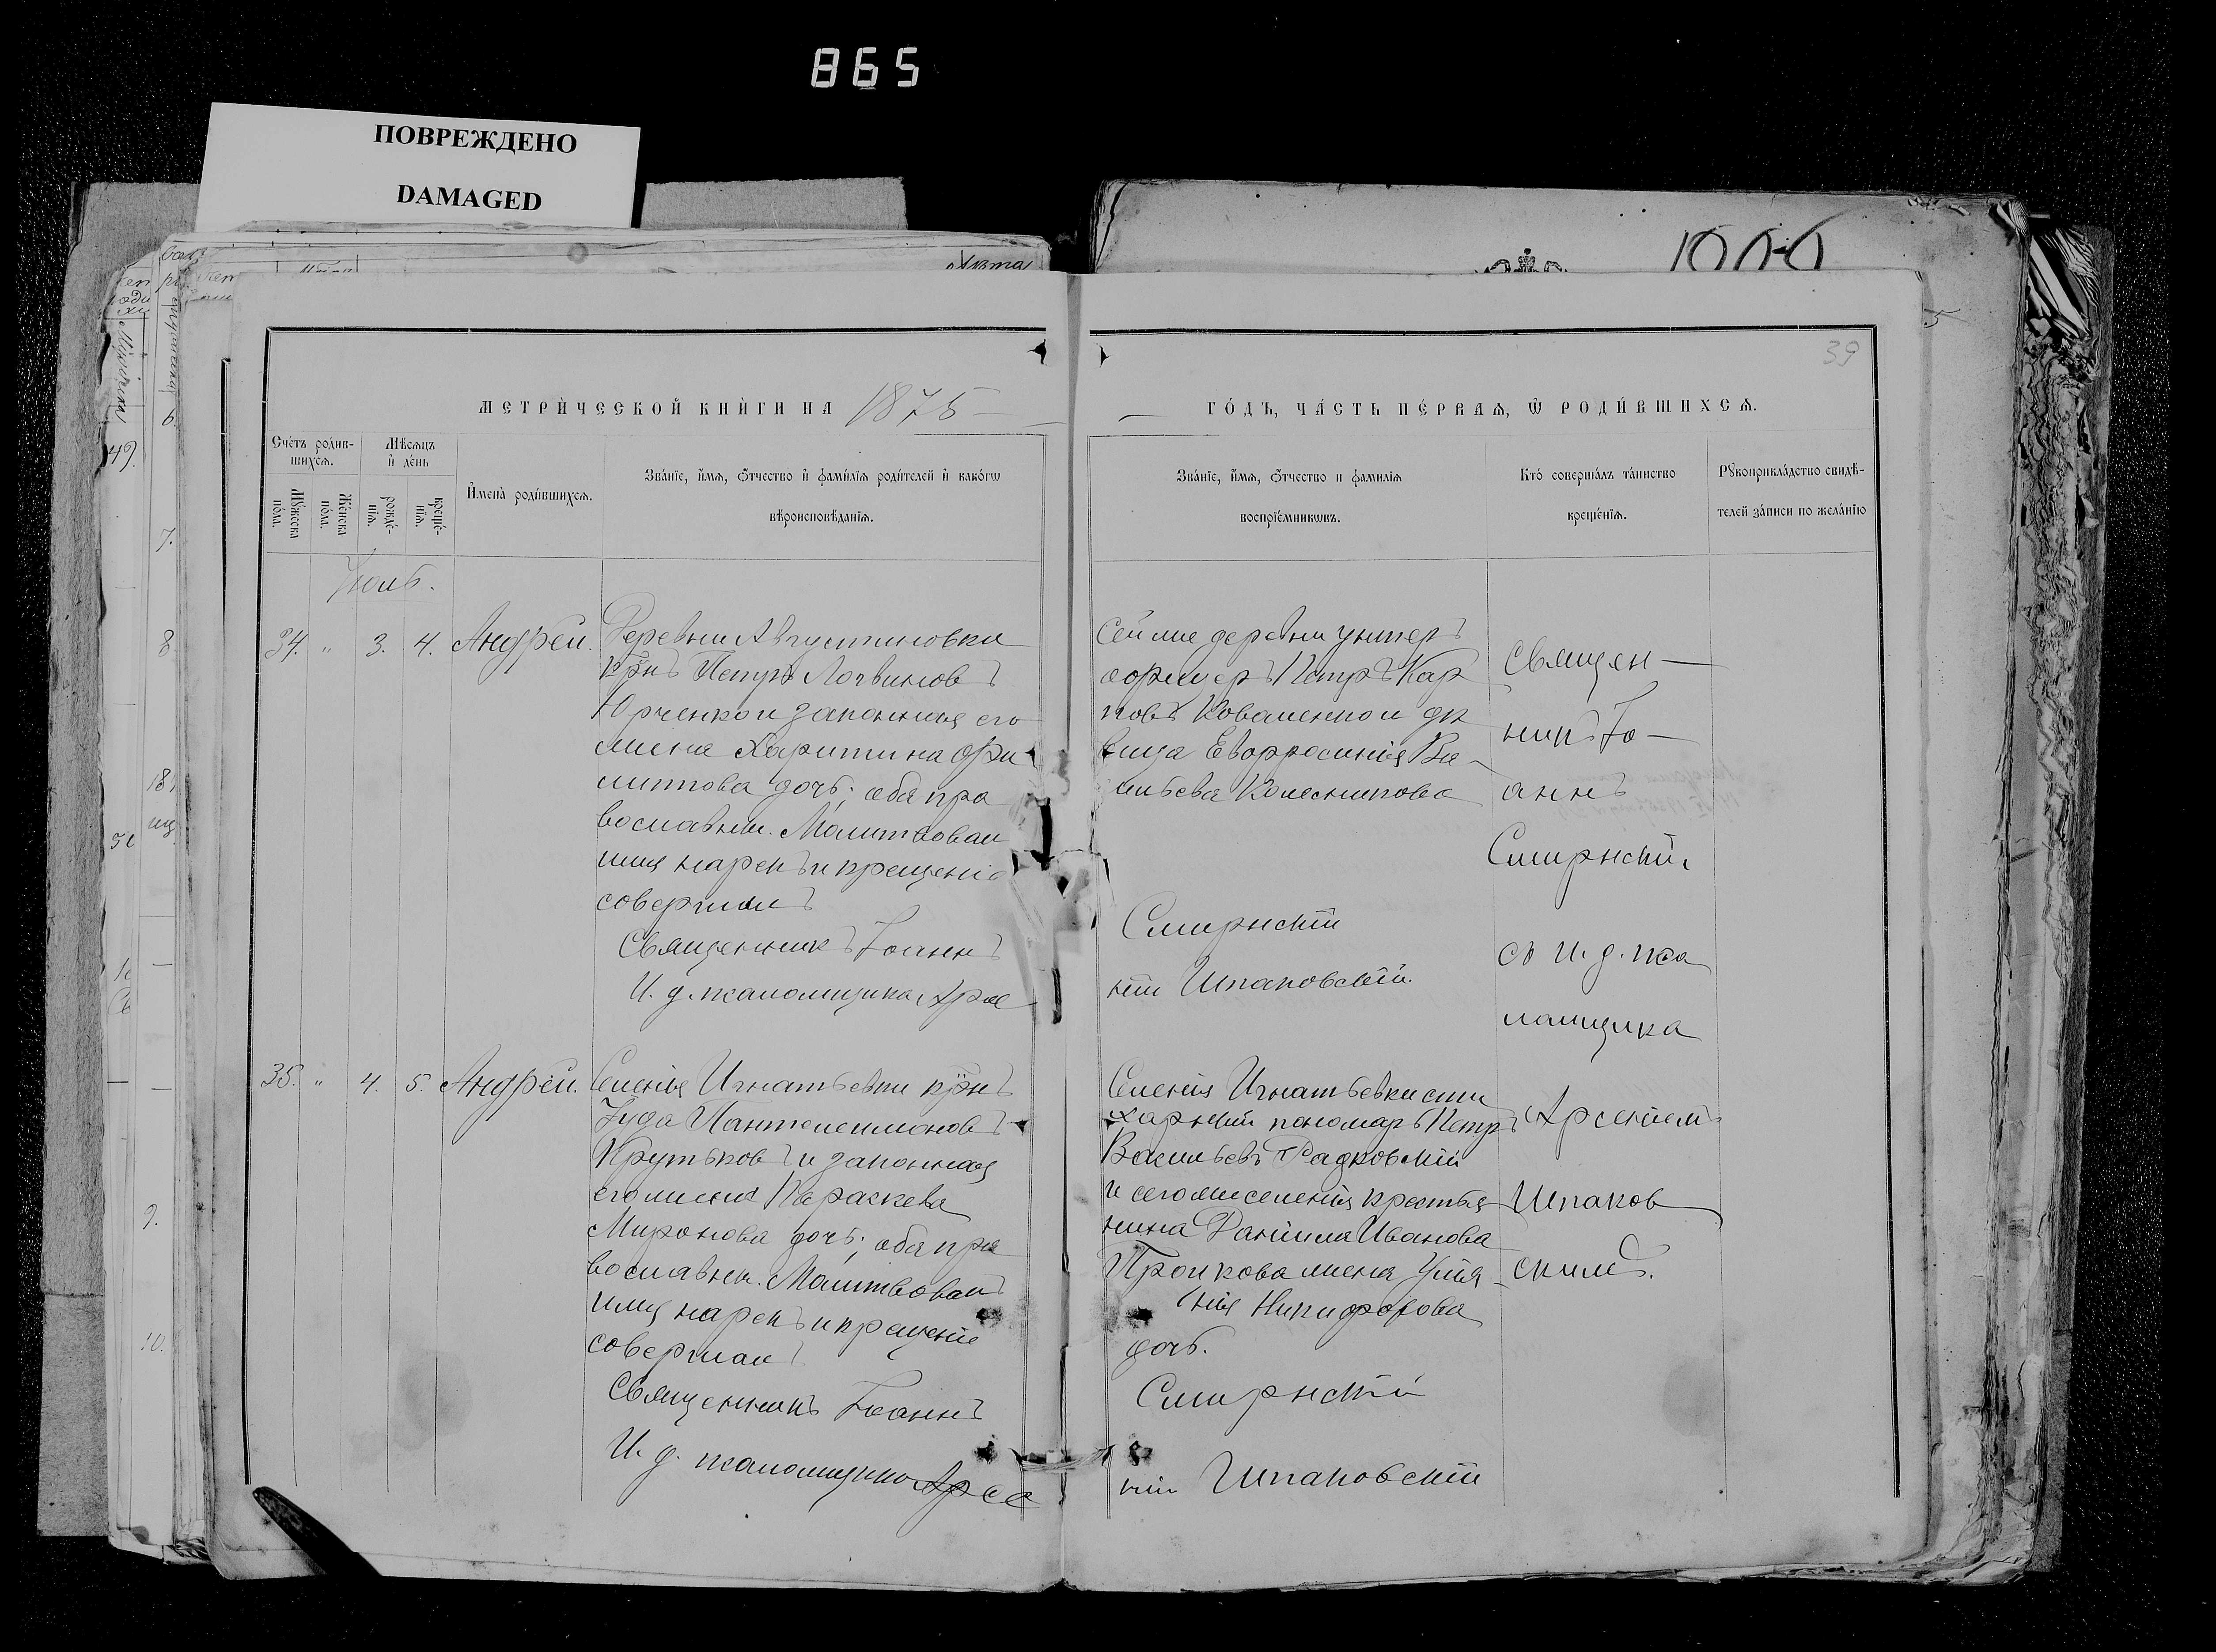 865
ПОВРЕЖДЕНО
DAMAGED
39
МЕТРИ́ЧЕСКОЙ КНИ́ГИ НА 1875
ГО́ДЪ, ЧА́СТЬ ПЕ́РВАѦ, Ѿ РОДИ́ВШИХСѦ.
Сче́тъ роди́в-
шихсѧ.
Мѣ́сѧцъ
и҆ де́нь
Му́жеска
по́ла.
Же́нска
по́ла.
рожде́-
нїѧ.
креще́-
нїѧ.
И҆мена̀ роди́вшихсѧ.
Зва́нїе, и҆́мѧ, ѻ҆́тчество и҆ фами́лїѧ роди́телей и҆ како́гѡ
вѣроисповѣ́данїѧ.
Зва́нїе, и҆́мѧ, ѻ҆́тчество и фами́лїѧ
воспрїе́мникѡвъ.
Кто́ соверша́лъ та́инство
креще́нїѧ.
Рꙋкоприкла́дство свидѣ́-
телей за́писи по жела́нїю
Іюль.
34. " 3. 4. Андрей.
Деревни Августиновки
крн̃ъ Петръ Логвиновъ
Юрченко и законная его
жена Харитина Фи
липпова дочь; оба пра
вославны. Молитвовал
имя нарекъ и крещеніе
совершилъ
Священникъ Іоаннъ
И. д. псаломщика Арсе
Сей же деревни унтеръ
офицеръ Петръ Кар
повъ Коваленко и дѣ
вица Евфросинія Ва
сильева Колесникова
Смирнскій
ній Шпаковскій.
Священ—
никъ Іо—
аннъ
Смирнскій
съ И. д. пса
ломщика
Арсеніемъ
Шпаков
скимъ.
35. " 4. 5. Андрей.
Селенія Игнатьевки крн̃ъ
Іуда Пантелеимоновъ
Крутьковъ и законная
его жена Параскева
Миронова дочь; оба пра
вославны. Молитвовалъ
имя нарекъ и крещеніе
совершилъ
Священникъ Іоаннъ
И. д. псаломщика Арсе
Селенія Игнатьевки
Василъевъ Радковскій
и сего же селенія крестья
нина Даніила Иванова
Пройкова жена Улія
нія Никифорова
дочь.
Смирнскій
ній Шпаковскій